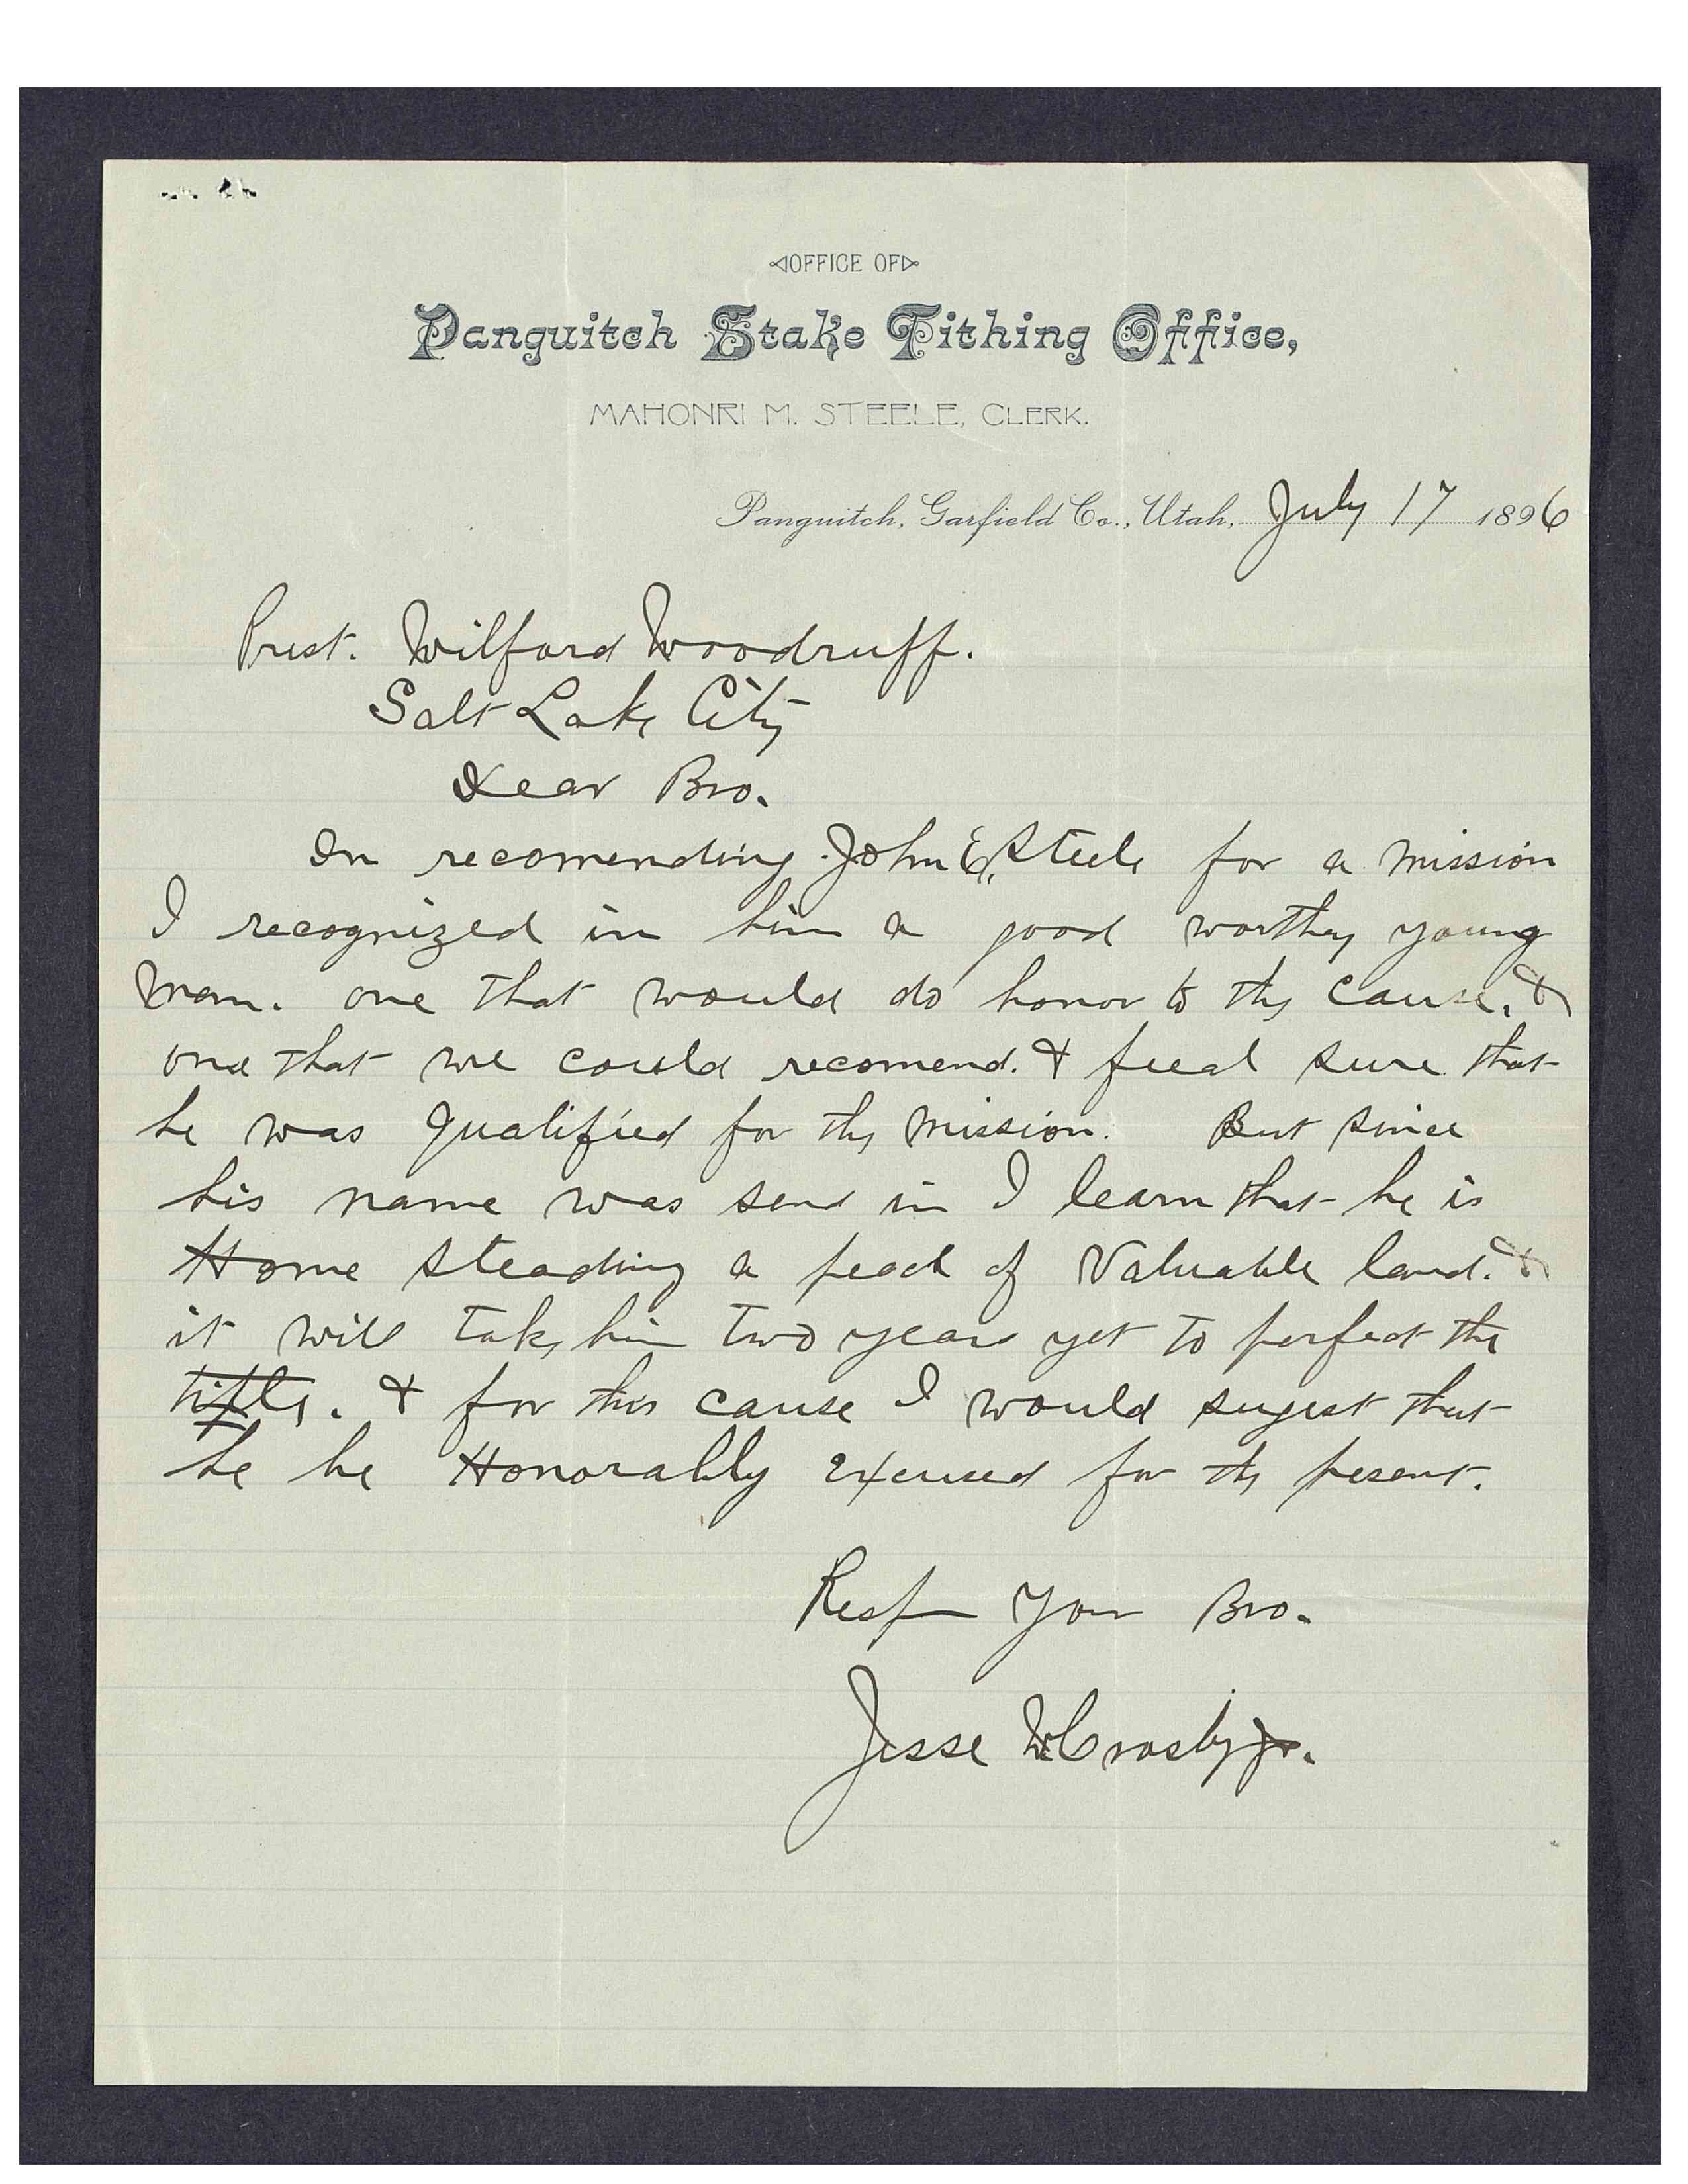 OFFICE OF
Panguitch Stake Tithing Office,
MAHONRI M. STEELE, CLERK.
Panguitch, Garfield Co., Utah, July 17 1896
Prest. Wilford Woodruff.
Salt Lake City
Dear Bro.
In recomending John E. Steele for a mission
I recognized in him a good worthy young
man. one that would do honor to the cause. &
one that we could recomend. & feeal sure that
he was qualified for the mission. But since
his name was send in I learn that he is
Home steading a peace of Valuable land. &
it will take him two years yet to perfect the
title. & for this cause I would sugest that
he be Honorably excused for the present.
Resp Your Bro.
Jesse W Crosby Jr.